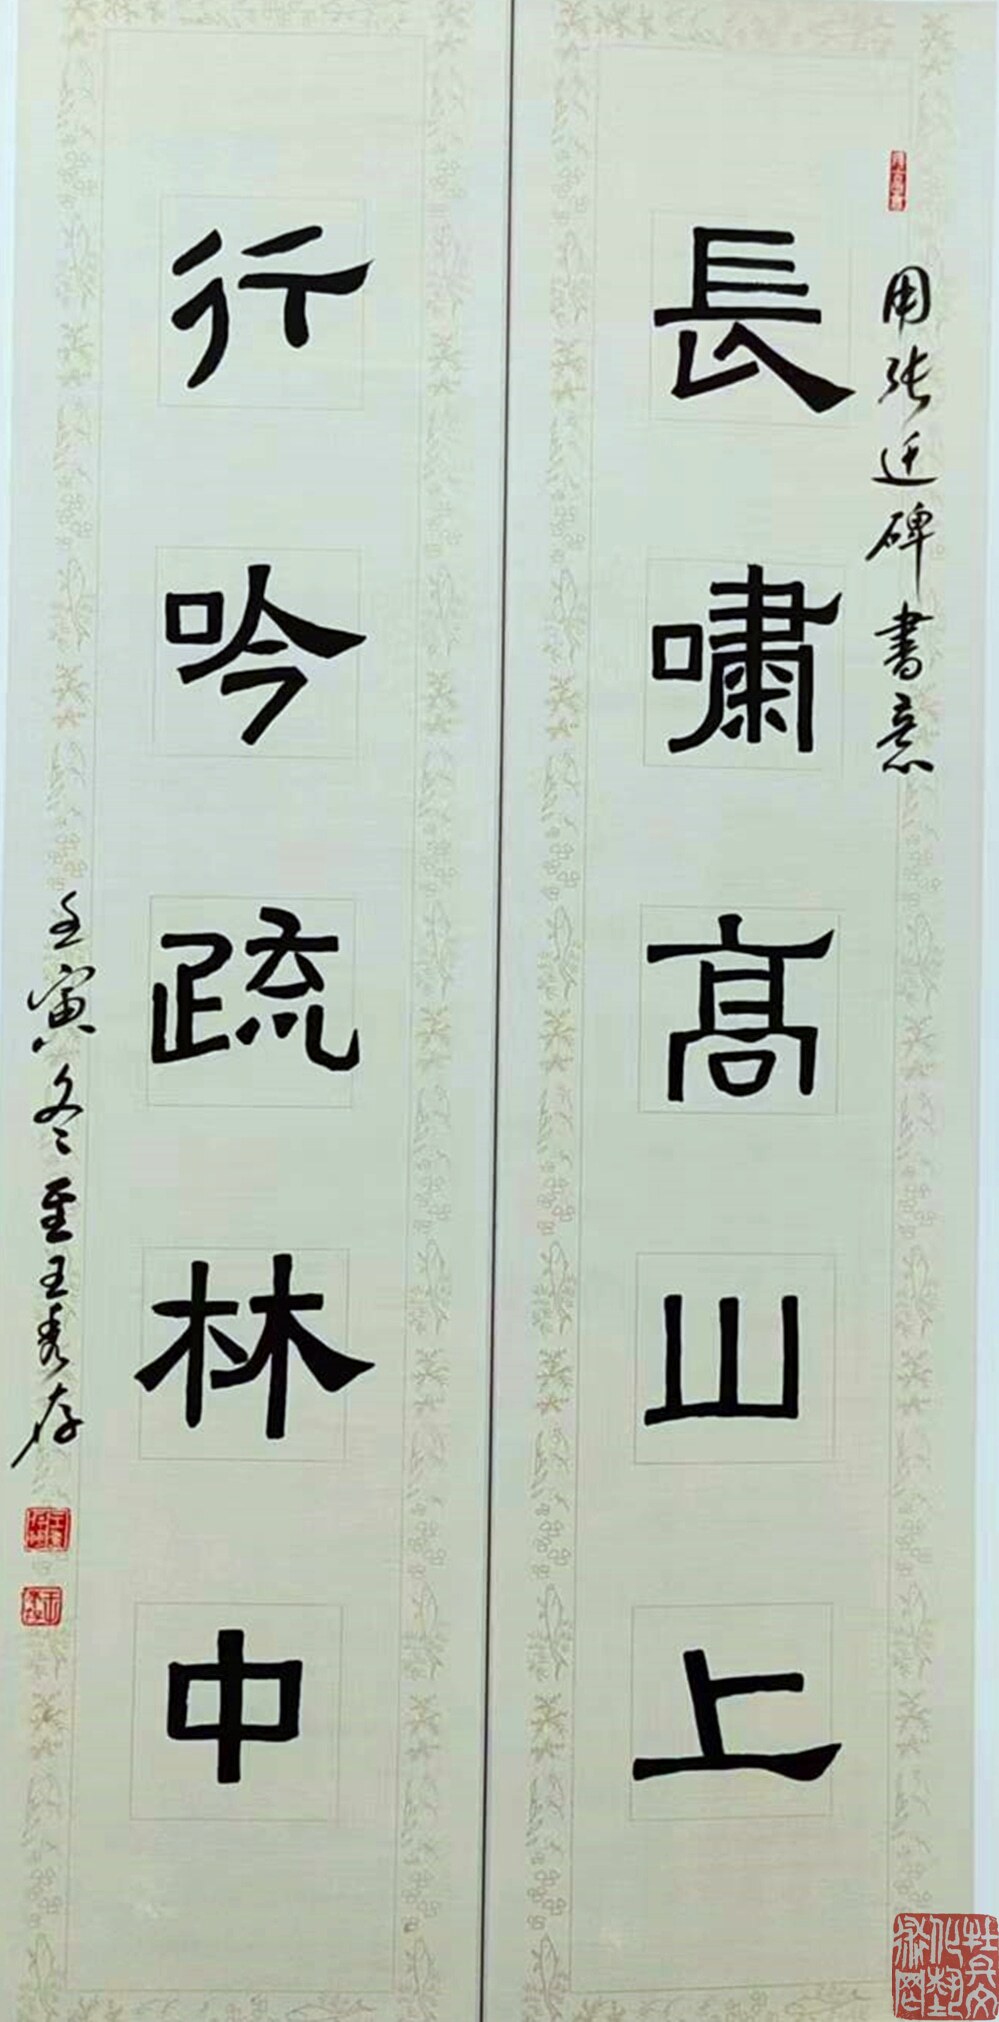 用张迁碑書意
長嘯高山上
行吟疏林中
壬寅冬至王秀存